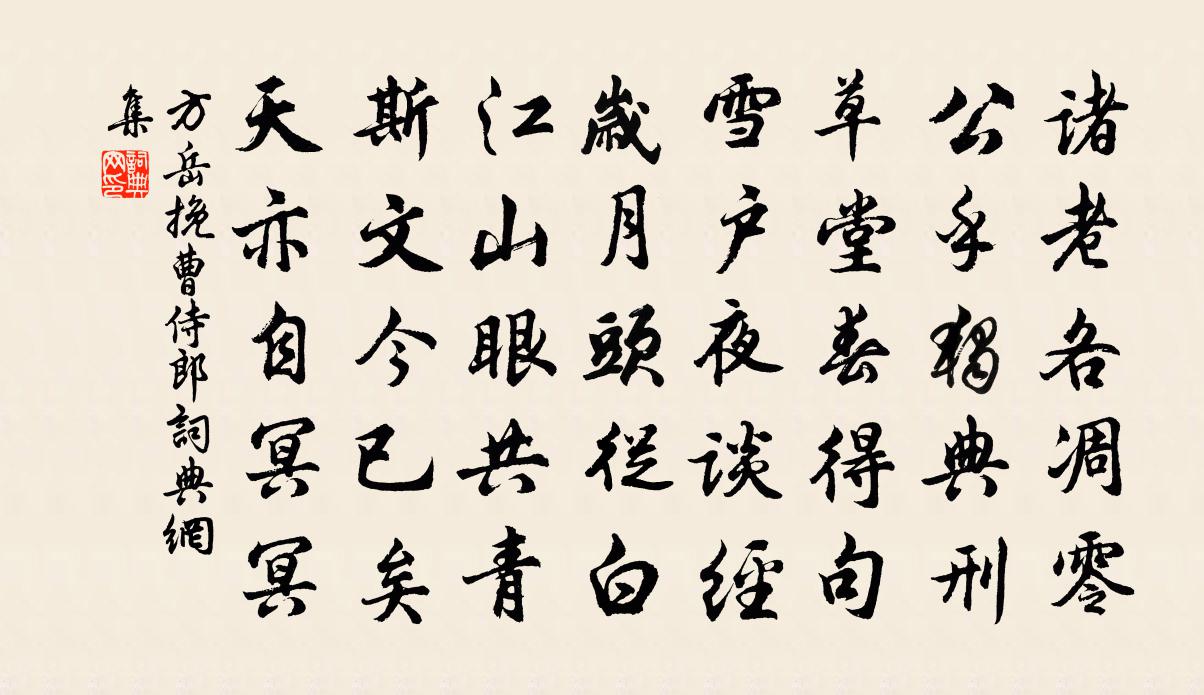 诸老各凋零
公乎独典刑
草堂春得句
雪户夜谈经
歲月頭從白
江山眼共青
斯文今已矣
天亦自冥冥
方岳挽曹侍郎詞典網
集
詞典网印